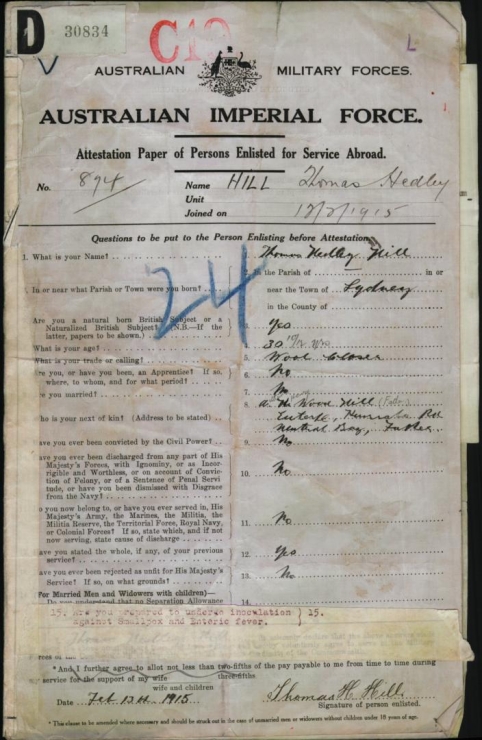 D 30834
C19
L
AUSTRALIAN MILITARY FORCES.
AUSTRALIAN IMPERIAL FORCE.
Attestation Paper of Persons Enlisted for Service Abroad.
No. 894 Name HILL Thomas Hedley
Unit
Joined on 13/2/1915
Questions to be put to the Person Enlisting before Attestation.
24
1. What is your Name? Thomas Hedley Hill
in the Parish of in or
In or near what Parish or Town were you born? near the Town of Sydney
in the County of
Are you a natural born British Subject or a
Naturalized British Subject? (N.B.—If the
latter, papers to be shown.) Yes
What is your age? 30
What is your trade or calling? 5. Wool Classer
Are you, or have you been, an Apprentice? If so,
where, to whom, and for what period? 6. No
Are you married? 7. No
Who is your next of kin? (Address to be stated) 8. Wood Hill
Neutral Bay, Father
ave you ever been convicted by the Civil Power? 9. No
ave you ever been discharged from any part of His
Majesty's Forces, with Ignominy, or as Incor-
rigible and Worthless, or on account of Convic-
tion of Felony, or of a Sentence of Penal Servi-
tude, or have you been dismissed with Disgrace
from the Navy? 10. No
o you now belong to, or have you ever served in, His
Majesty's Army, the Marines, the Militia, the
Militia Reserve, the Territorial Force, Royal Navy,
or Colonial Forces? If so, state which, and if not
now serving, state cause of discharge 11. No
ave you stated the whole, if any, of your previous
service? 12. Yes
ave you ever been rejected as unfit for His Majesty's
Service? If so, on what grounds? 13. No
For Married Men and Widowers with children)—
Do you understand that no Separation Allowance 14.
15. Are you prepared to undergo inoculation } 15.
against Smallpox and Enteric fever.
*And I further agree to allot not less than two-fifths of the pay payable to me from time to time during
three-fifths
service for the support of my wife
wife and children
Date Feb 13th 1915 Thomas H. Hill
Signature of person enlisted.
*This clause to be amended where necessary and should be struck out in the case of unmarried men or widowers without children under 18 years of age.